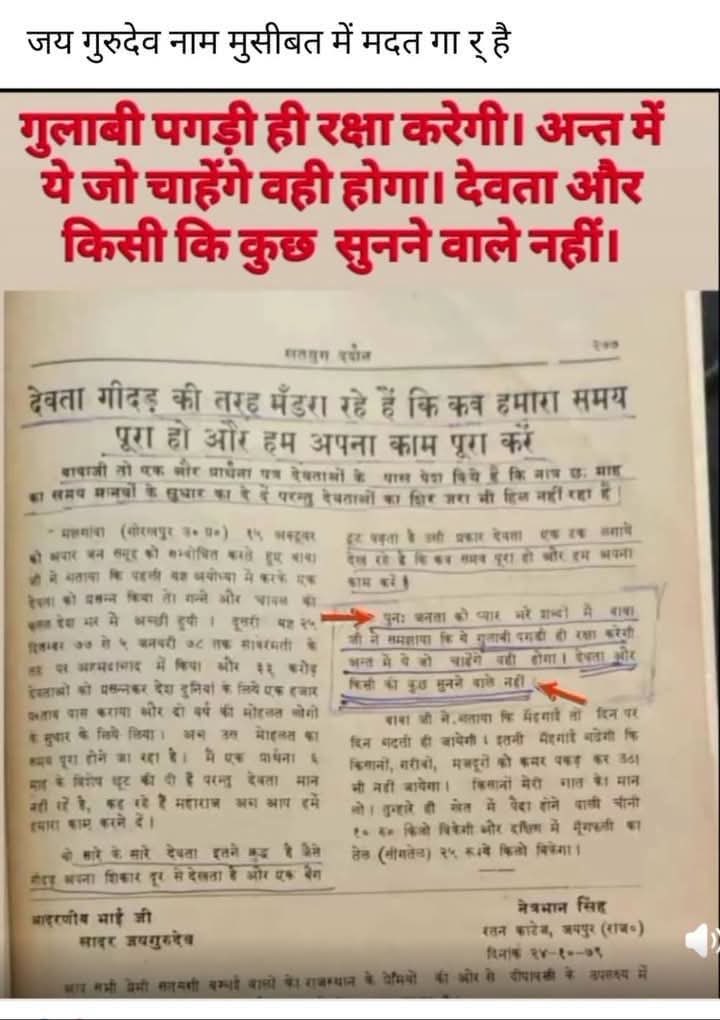 जय गुरुदेव नाम मुसीबत में मदत गा र् है
गुलाबी पगड़ी ही रक्षा करेगी। अन्त में
ये जो चाहेंगे वही होगा। देवता और
किसी कि कुछ सुनने वाले नहीं।
सतयुग दर्शन २७७
देवता गीदड़ की तरह मँडरा रहे हैं कि कब हमारा समय
पूरा हो और हम अपना काम पूरा करें
बाबाजी तो एक और प्रार्थना पत्र देवताओं के पास पेश किये हैं कि मात्र छः माह
का समय मानवों के सुधार का दे दें परन्तु देवताओं का शिर जरा भी हिल नहीं रहा है।
(गोरखपुर उ० प्र०) १५ अक्टूबर
को अपार जन समूह को सम्बोधित करते हुए बाबा
जी ने बताया कि पहली यज्ञ अयोध्या में करके एक
देवता को प्रसन्न किया तो गन्ने और चावल की
फसल देश भर में अच्छी हुयी। दूसरी यज्ञ २५
दिसम्बर ७७ से ५ जनवरी ७८ तक साबरमती के
तट पर अहमदाबाद में किया और ३३ करोड़
देवताओं को प्रसन्नकर देश दुनियां के लिये एक हजार
प्रस्ताव पास कराया और दो वर्ष की मोहलत लोगों
के सुधार के लिये लिया। अब उस मोहलत का
समय पूरा होने जा रहा है। मैं एक प्रार्थना ६
माह के विशेष छूट की दी है परन्तु देवता मान
नहीं रहे है, कह रहे हैं महाराज अब आप हमें
हमारा काम करने दें।
वो सारे के सारे देवता इतने क्रुद्ध है जैसे
गीदड़ अपना शिकार दूर से देखता है और एक बैग
टूट पड़ता है उसी प्रकार देवता एक टक लगाये
देख रहे है कि कब समय पूरा हो और हम अपना
काम करें।
पुनः जनता को प्यार भरे शब्दों में बाबा
जी ने समझाया कि ये गुलाबी पगड़ी ही रक्षा करेगी
अन्त में ये जो चाहेंगे वही होगा। देवता और
किसी की कुछ सुनने वाले नहीं।
बाबा जी ने बताया कि मँहगाई तो दिन पर
दिन बढती ही जायेगी। इतनी मँहगाई बढेगी कि
किसानों, गरीबों, मजदूरों को कमर पकड़ कर उठा
भी नहीं जायेगा। किसानों मेरी बात को मान
लो। तुम्हारे ही खेत में पैदा होने वाली चीनी
१० रू० किलो बिकेगी और दक्षिण में मूंगफली का
तेल (सींगतेल) २५ रूपये किलो बिकेगा।
आदरणीय भाई जी
सादर जयगुरुदेव
नेत्रभान सिंह
रतन काटेज, जयपुर (राज०)
दिनांक २४-१०-७९
आप सभी प्रेमी सतसंगी बम्बई वालों को राजस्थान के प्रेमियों की ओर से दीपावली के उपलक्ष्य में